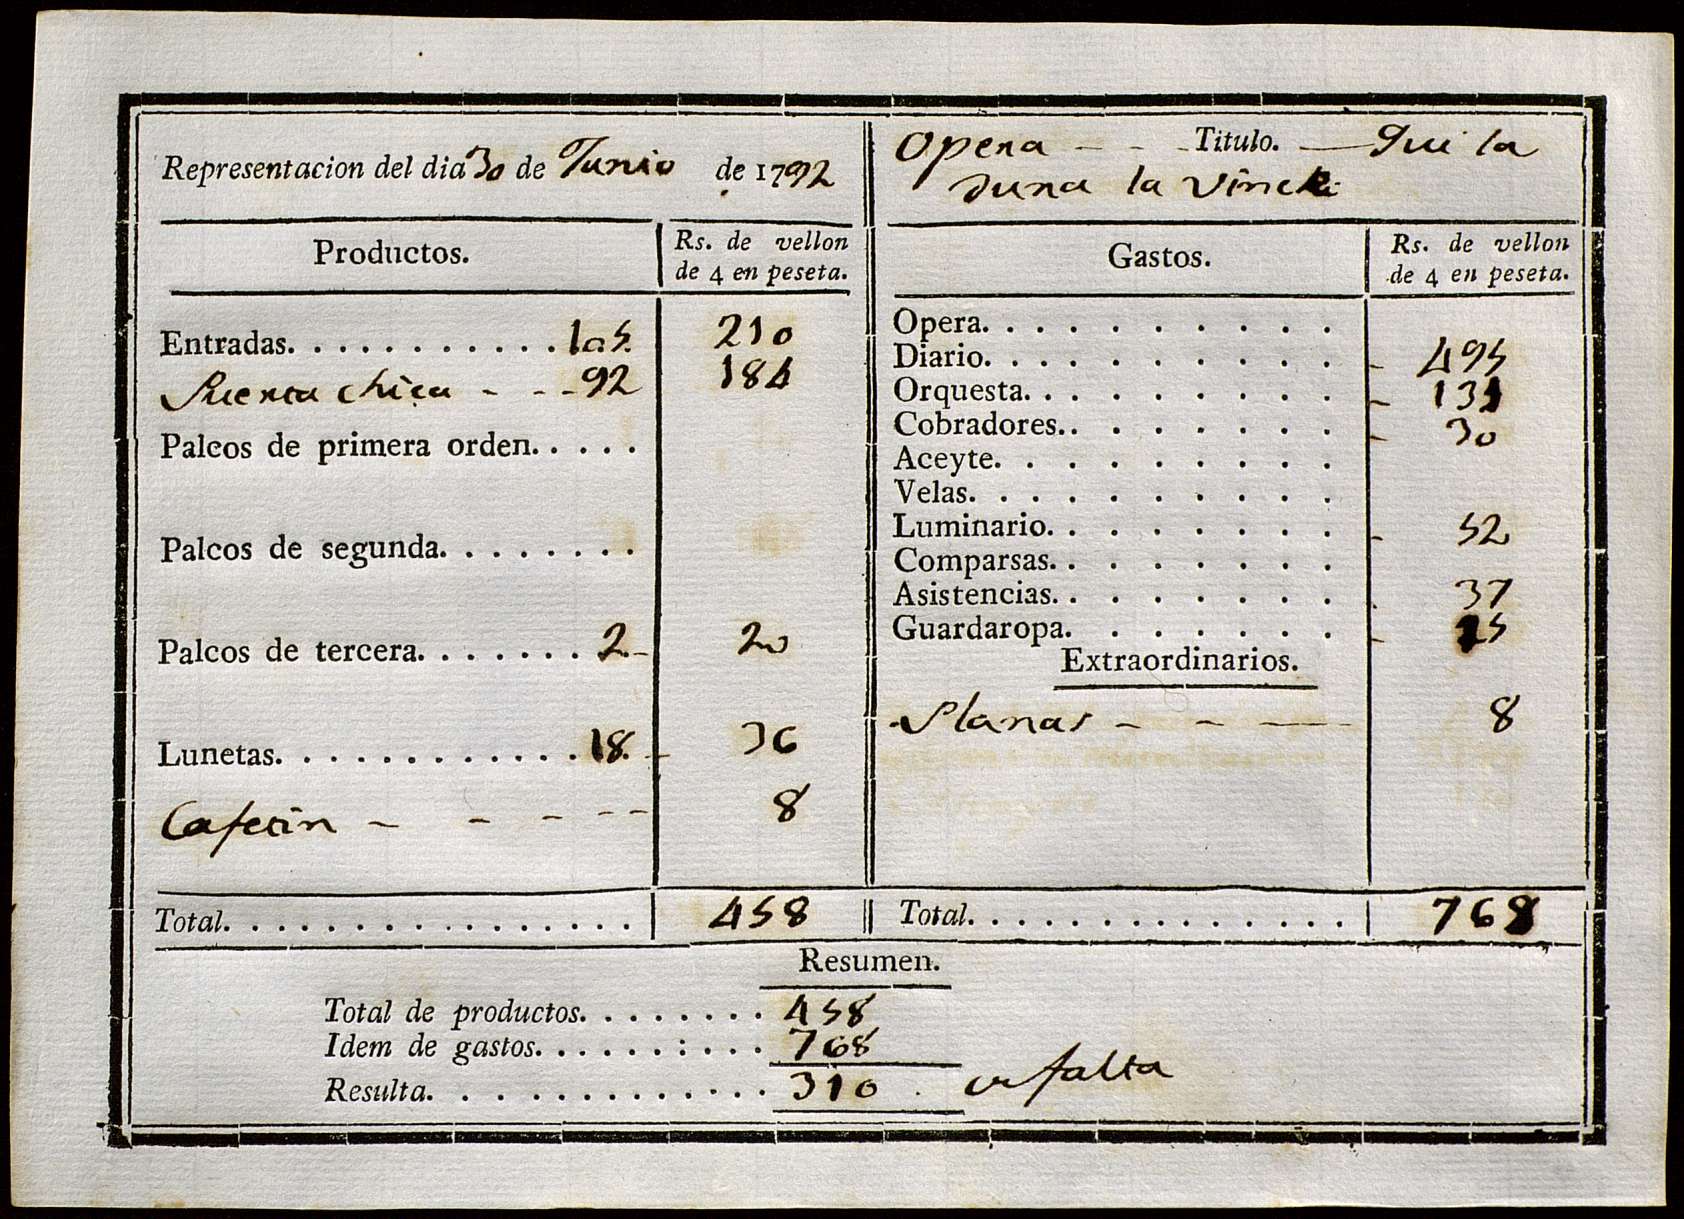 Representacion del dia 30 de Junio de 1792
Opera - - - Titulo. — Qui la
dura la vince
Productos.
Rs. de vellon
de 4 en peseta.
Entradas. . . . . . . . . . . 105. 210
Puerta chica - - - 92 184
Palcos de primera orden. . . . .
Palcos de segunda. . . . . . . .
Palcos de tercera. . . . . . . 2. - 20
Lunetas. . . . . . . . . . . . 18. - 36
Cafetin - - - - - - 8
Total. . . . . . . . . . . . . . . . . 458
Gastos.
Rs. de vellon
de 4 en peseta.
Opera. . . . . . . . . . .
Diario. . . . . . . . . . . - 495
Orquesta. . . . . . . . . - 131
Cobradores. . . . . . . . - 30
Aceyte. . . . . . . . . .
Velas. . . . . . . . . . .
Luminario. . . . . . . . - 52
Comparsas. . . . . . . .
Asistencias. . . . . . . . - 37
Guardaropa. . . . . . . - 15
Extraordinarios.
Planas - - — 8
Total. . . . . . . . . . . . . . . 768
Resumen.
Total de productos. . . . . . . . 458
Idem de gastos. . . . . . : . . . 768
Resulta. . . . . . . . . . . . . 310 . falta